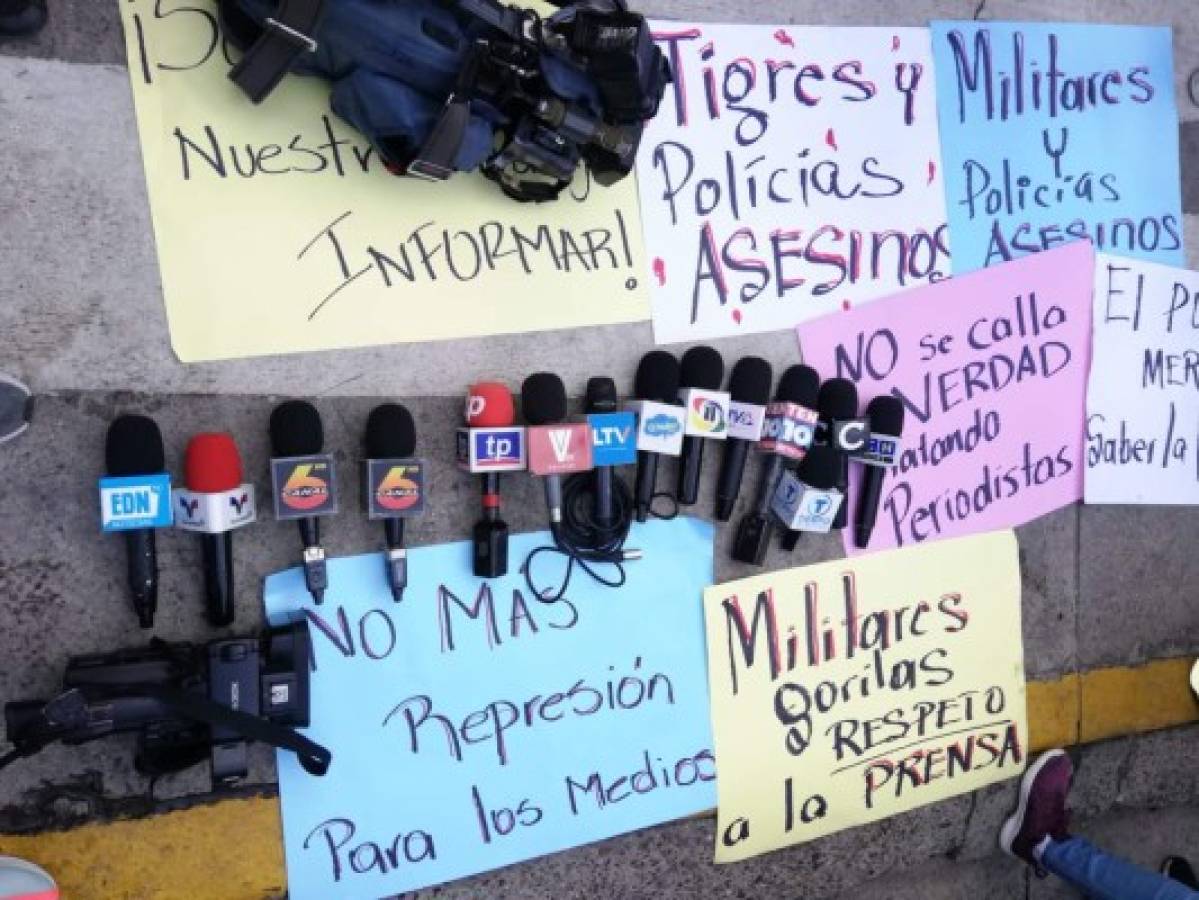 Nuestr
INFORMAR!
Tigres y
Polícías
ASESINOS
Militares
y
Policías
ASESINOS
NO se calla
VERDAD
matando
Periodistas
El P
MER
Saber la
EDN
NOTICIAS
6
CANAL
6
CANAL
tp
tp
LTV
10
C
NO MÁS
Represión
Para los Medios
Militares
gorilas
RESPETO
a la PRENSA